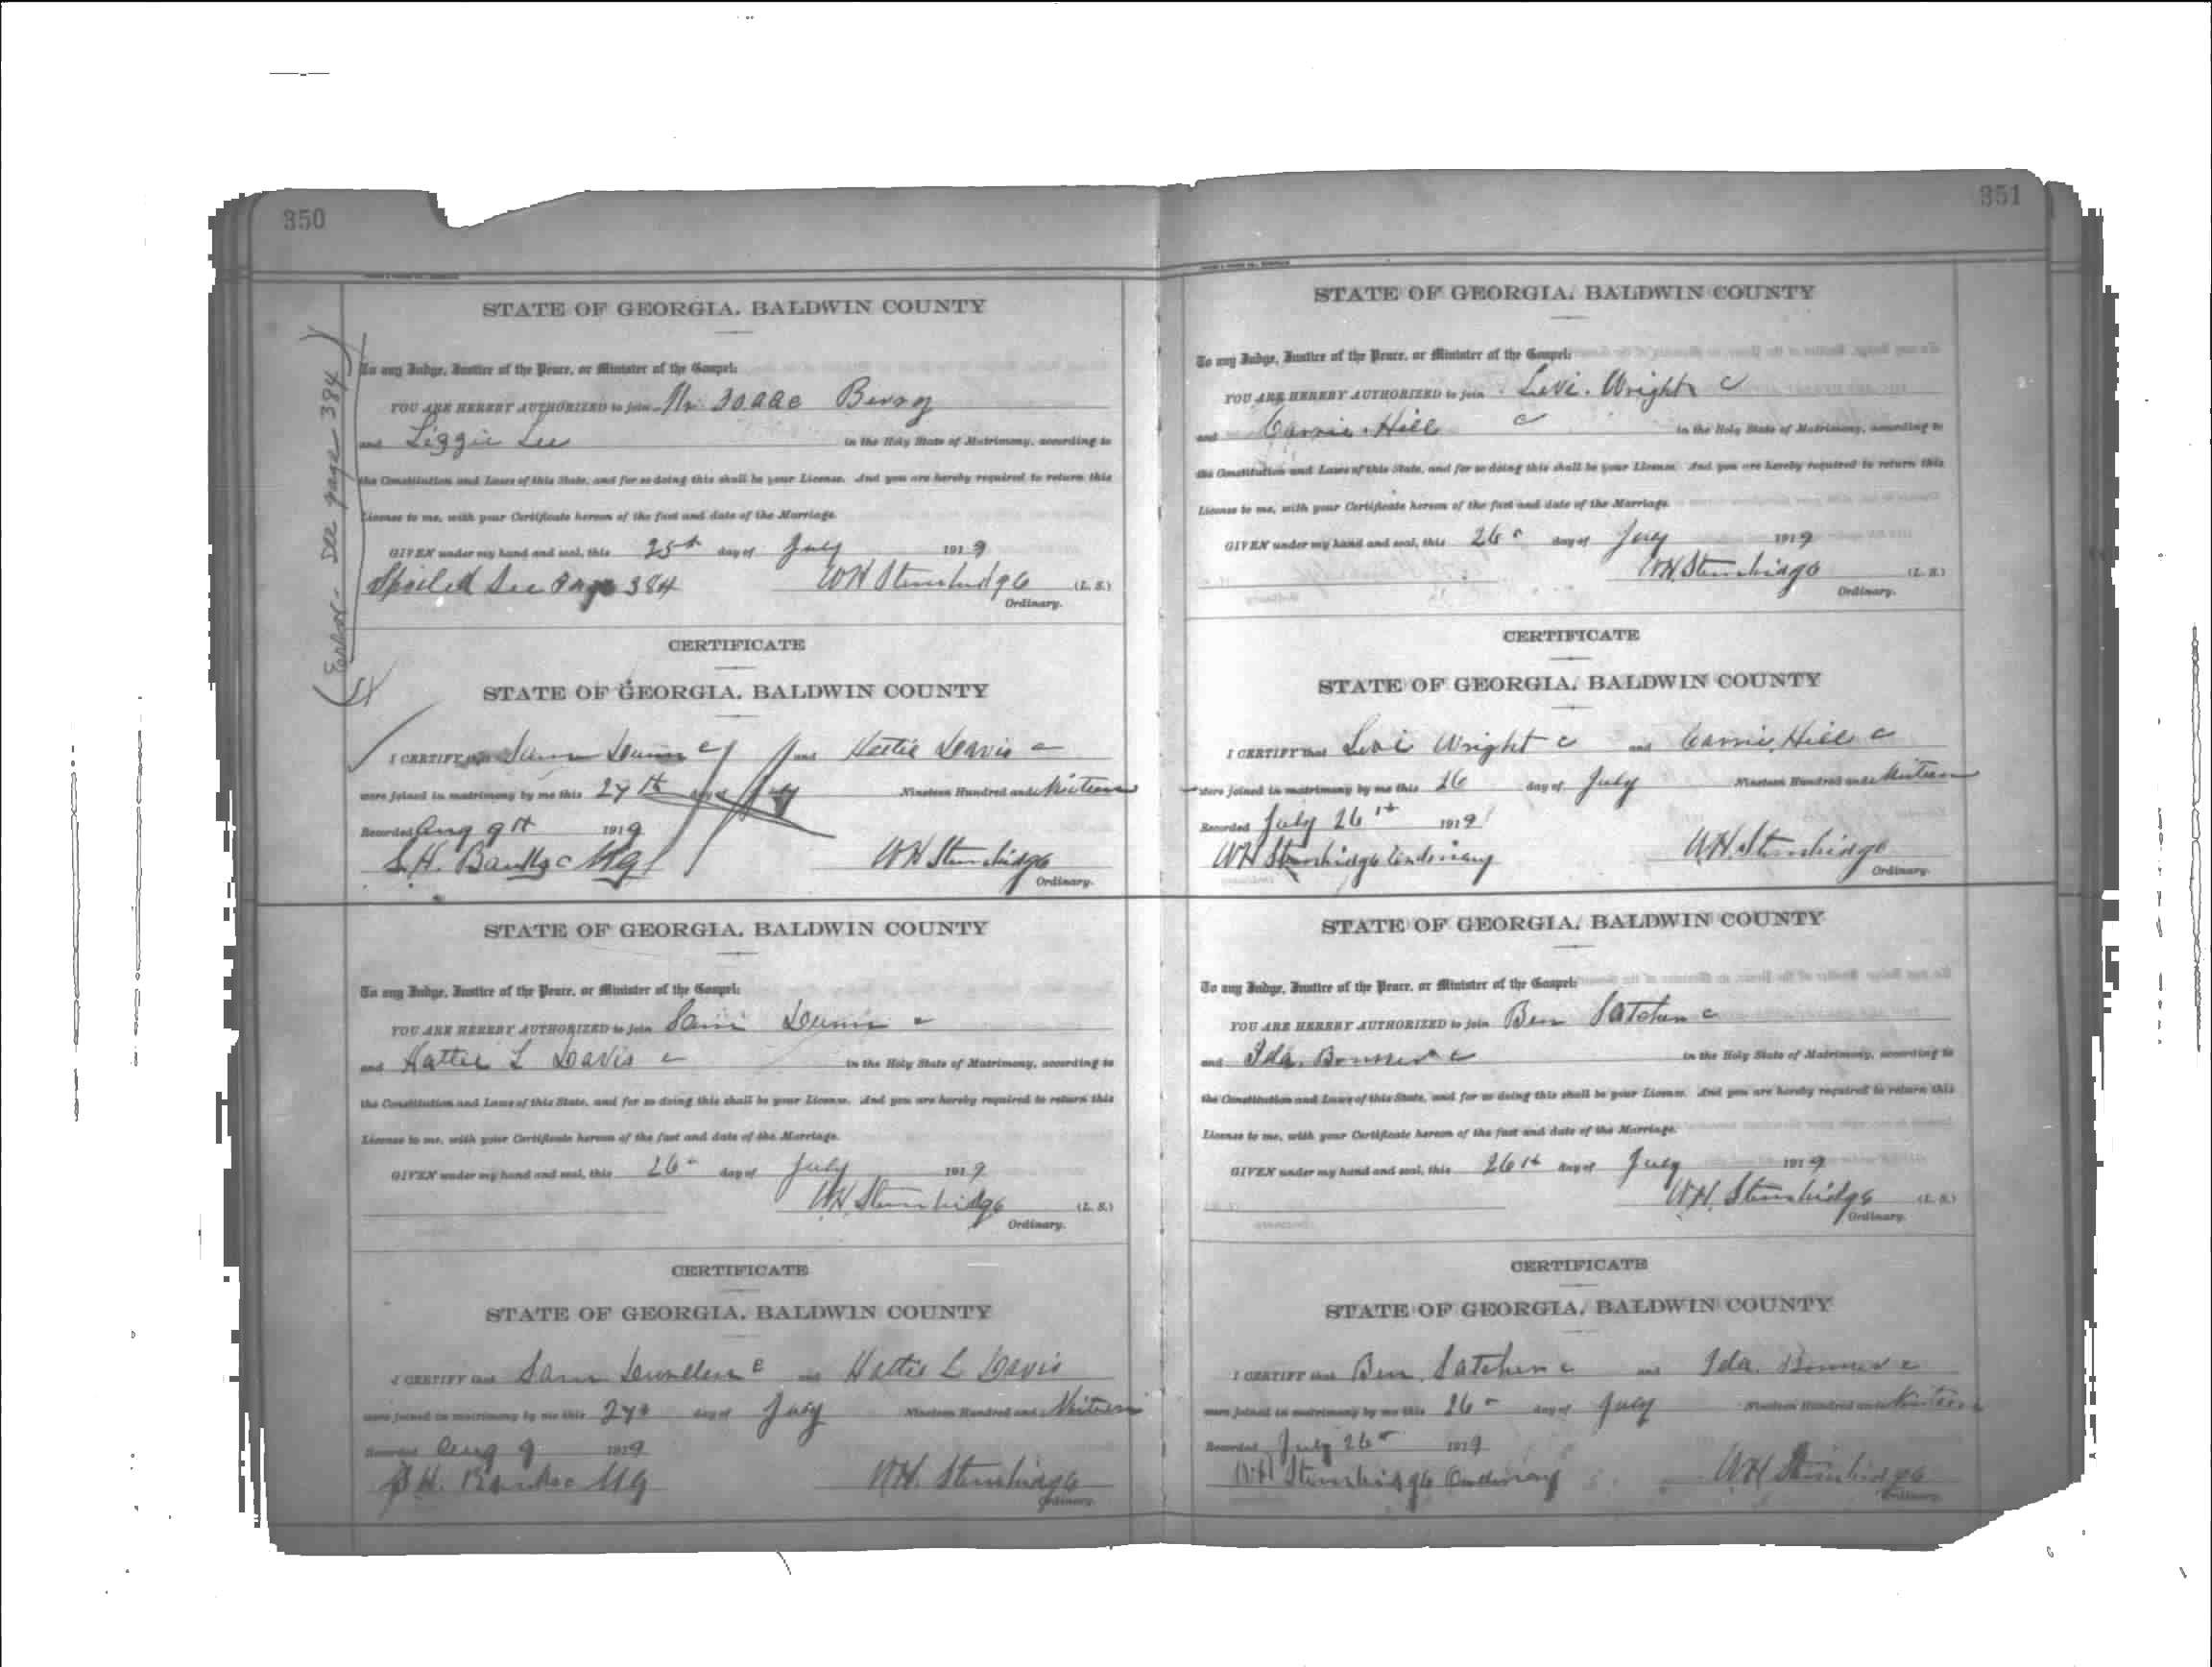 350
(Error - See page 384)
STATE OF GEORGIA, BALDWIN COUNTY
To any Judge, Justice of the Peace, or Minister of the Gospel:
YOU ARE HEREBY AUTHORIZED to join Mr Isaac Berry
and Lizzie Lee in the Holy State of Matrimony, according to
the Constitution and Laws of this State, and for so doing this shall be your License. And you are hereby required to return this
License to me, with your Certificate hereon of the fact and date of the Marriage.
GIVEN under my hand and seal, this 25th day of July 1919
Spoiled See Page 384 WH Stembridge (L. S.)
Ordinary.
CERTIFICATE
STATE OF GEORGIA, BALDWIN COUNTY
I CERTIFY that Sam Dunn c and Hattie Davis c
were joined in matrimony by me this 27th day of July Nineteen Hundred and Nineteen
Recorded Aug 9th 1919
S.H. Banks c MG WH Stembridge
Ordinary.
STATE OF GEORGIA, BALDWIN COUNTY
To any Judge, Justice of the Peace, or Minister of the Gospel:
YOU ARE HEREBY AUTHORIZED to join Sam Dunn c
and Hattie L Davis c in the Holy State of Matrimony, according to
the Constitution and Laws of this State, and for so doing this shall be your License. And you are hereby required to return this
License to me, with your Certificate hereon of the fact and date of the Marriage.
GIVEN under my hand and seal, this 26 day of July 1919
WH Stembridge (L. S.)
Ordinary.
CERTIFICATE
STATE OF GEORGIA, BALDWIN COUNTY
I CERTIFY that Sam and Hattie L Davis
were joined in matrimony by me this 27th day of July Nineteen Hundred and Nineteen
Recorded Aug 9 1919
S H. Banks c MG WH. Stembridge
Ordinary.
351
STATE OF GEORGIA, BALDWIN COUNTY
To any Judge, Justice of the Peace, or Minister of the Gospel:
YOU ARE HEREBY AUTHORIZED to join Levi Wright c
and Carrie Hill c in the Holy State of Matrimony, according to
the Constitution and Laws of this State, and for so doing this shall be your License. And you are hereby required to return this
License to me, with your Certificate hereon of the fact and date of the Marriage.
GIVEN under my hand and seal, this 26 day of July 1919
WH Stembridge (L. S.)
Ordinary.
CERTIFICATE
STATE OF GEORGIA, BALDWIN COUNTY
I CERTIFY that Levi Wright c and Carrie Hill c
were joined in matrimony by me this 26 day of July Nineteen Hundred and Nineteen
Recorded July 26th 1919
WH Stembridge Ordinary WH Stembridge
Ordinary.
STATE OF GEORGIA, BALDWIN COUNTY
To any Judge, Justice of the Peace, or Minister of the Gospel:
YOU ARE HEREBY AUTHORIZED to join Ben Satchen c
and Ida Bonner c in the Holy State of Matrimony, according to
the Constitution and Laws of this State, and for so doing this shall be your License. And you are hereby required to return this
License to me, with your Certificate hereon of the fact and date of the Marriage.
GIVEN under my hand and seal, this 26th day of July 1919
WH. Stembridge (L. S.)
Ordinary.
CERTIFICATE
STATE OF GEORGIA, BALDWIN COUNTY
I CERTIFY that Ben Satchen c and Ida Bonner c
were joined in matrimony by me this 26 day of July Nineteen Hundred and Nineteen
Recorded July 26 1919
WH Stembridge Ordinary WH Stembridge
Ordinary.